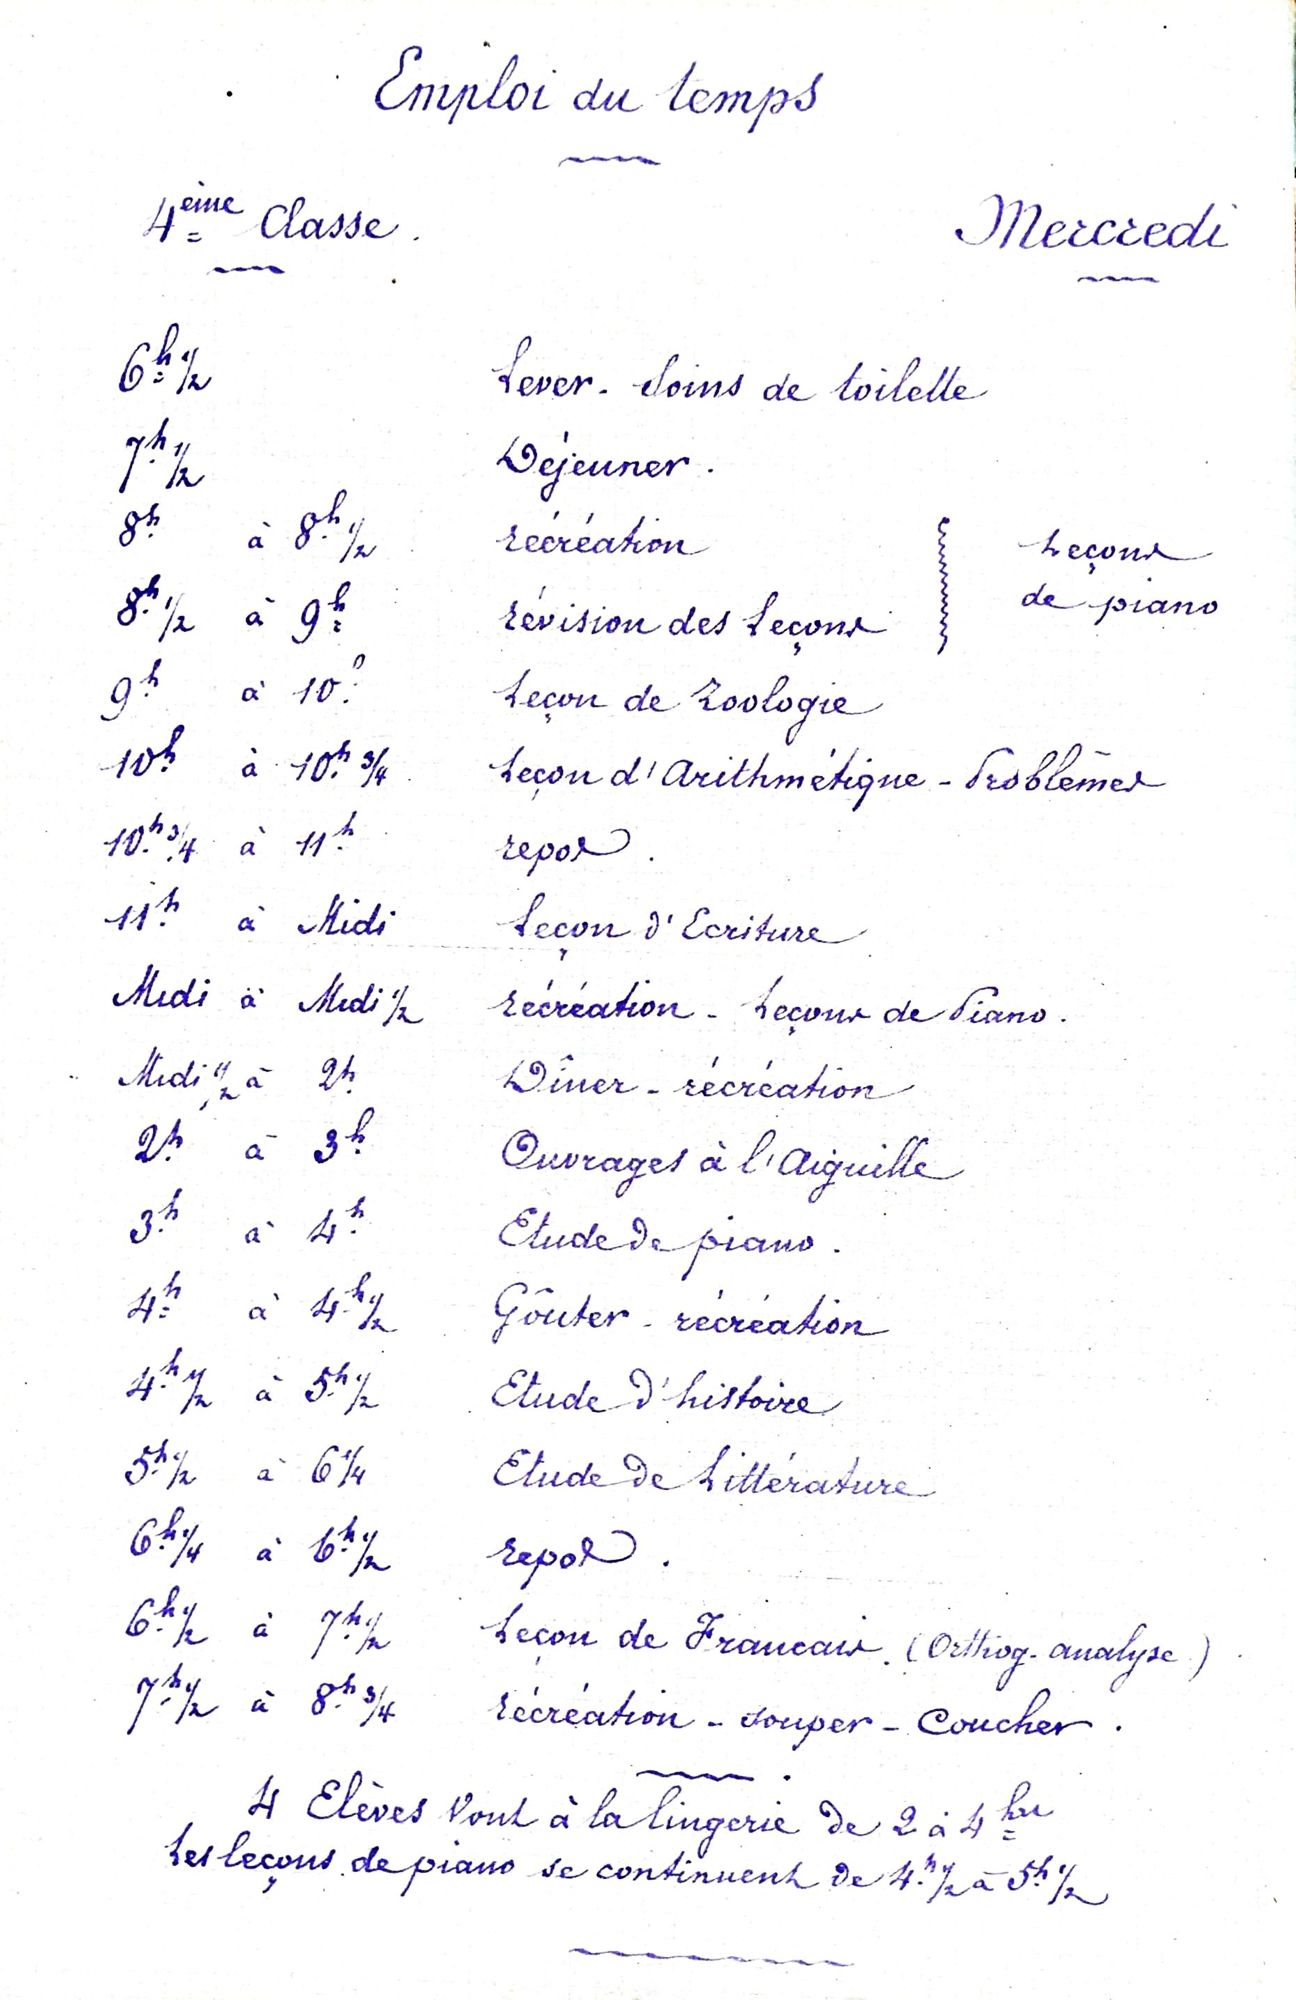 Emploi du temps
4ème Classe. Mercredi
6h 1/2 Lever - Soins de toilette
7h 1/2 Déjeuner.
8h à 8h 1/2 récréation Leçons
8h 1/2 à 9h révision des Leçons de piano
9h à 10h Leçon de Zoologie
10h à 10h 3/4 Leçon d'Arithmétique - Problêmes
10h 3/4 à 11h repos.
11h à Midi Leçon d'Ecriture
Midi à Midi 1/2 récréation - Leçons de Piano.
Midi 1/2 à 2h Dîner - récréation
2h à 3h Ouvrages à l'Aiguille
3h à 4h Etude de piano.
4h à 4h 1/2 Goûter - récréation
4h 1/2 à 5h 1/2 Etude d'histoire
5h 1/2 à 6 1/4 Etude de Littérature
6h 1/4 à 6h 1/2 repos.
6h 1/2 à 7h 1/2 Leçon de Francais. (Orthog. analyse)
7h 1/2 à 8h 3/4 récréation - souper - Coucher.
4 Elèves vont à la lingerie de 2 à 4 hes
Les leçons de piano se continuent de 4h 1/2 à 5h 1/2